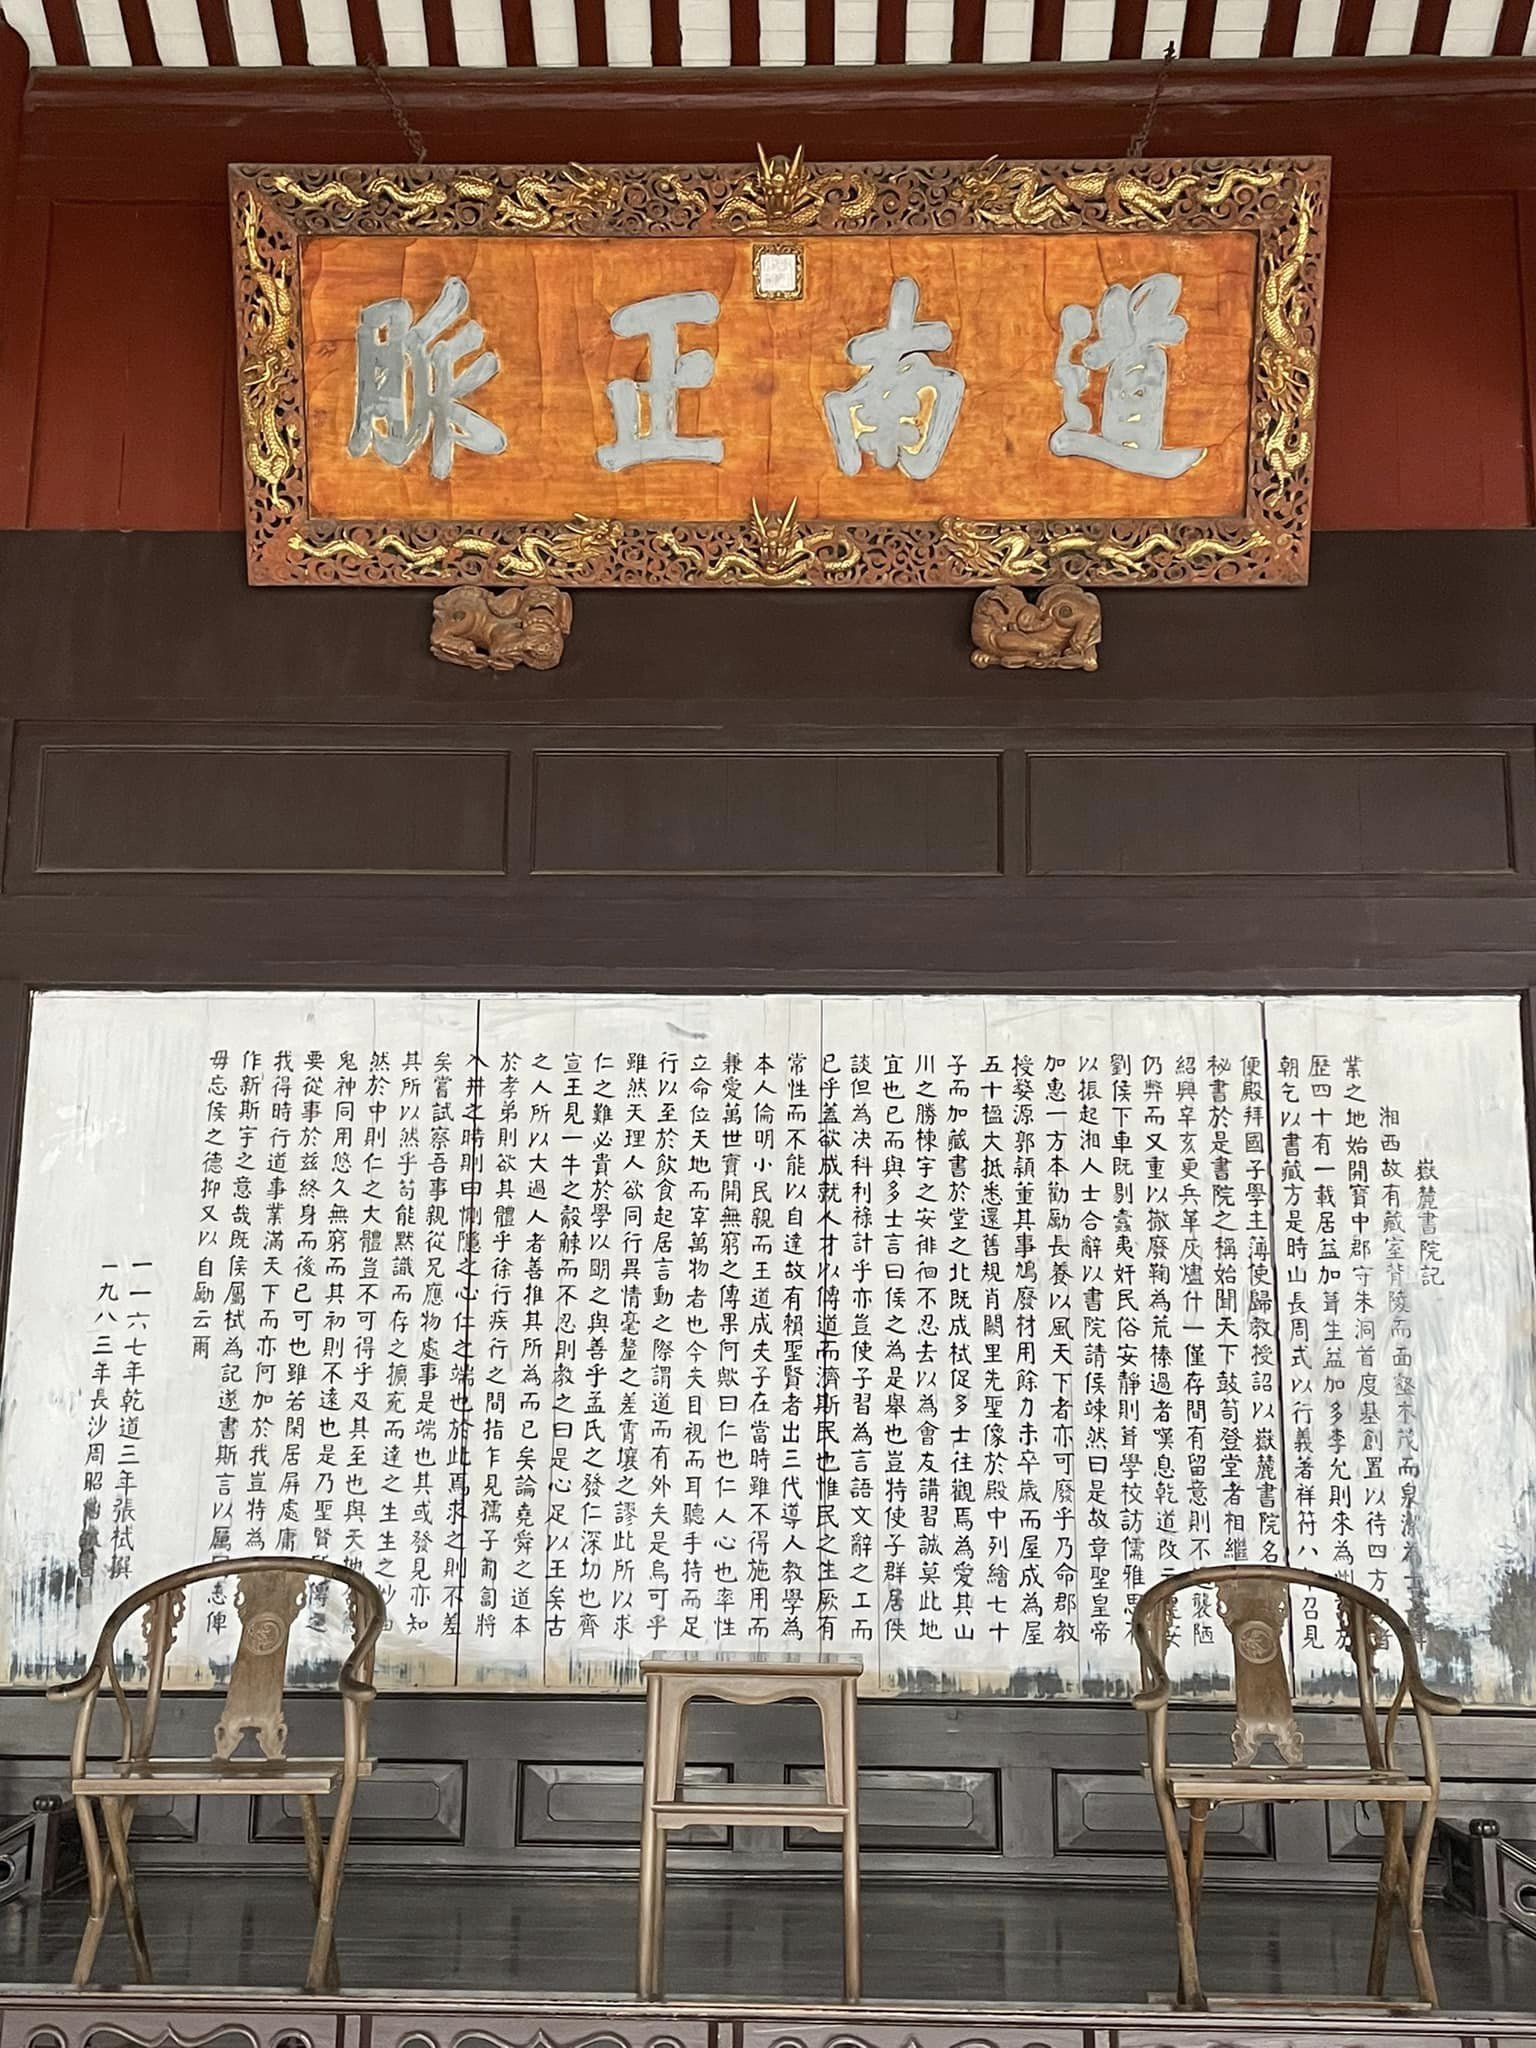 道南正脈
嶽麓書院記
湘西故有藏室背陵而面壑木茂而泉潔為士
業之地始開寶中郡守朱洞首度基創置以待四方者
歷四十有一載居益加葺生益加多李允則來為州於
朝乞以書藏方是時山長周式以行義著祥符八年召見
便殿拜國子學主簿使歸教授詔以嶽麓書院名
秘書於是書院之稱始聞天下鼓笥登堂者相繼
紹興辛亥更兵革灰燼什一僅存間有留意則不過襲陋
仍弊而又重以撤廢鞠為荒榛過者嘆息乾道改元建安
劉侯下車既剔蠹夷奸民俗安靜則葺學校訪儒雅思有
以振起湘人士合辭以書院請侯竦然曰是故章聖皇帝
加惠一方本勸勵長養以風天下者亦可廢乎乃命郡教
授婺源郭頴董其事鳩廢材用餘力未卒歲而屋成為屋
五十楹大抵悉還舊規肖闕里先聖像於殿中列繪七十
子而加藏書於堂之北既成栻促多士往觀焉為愛其山
川之勝棟宇之安徘徊不忍去以為會友講習誠莫此地
宜也已而與多士言曰侯之為是舉也豈特使子群居佚
談但為决科利祿計乎亦豈使子習為言語文辭之工而
已乎蓋欲成就人才以傳道而濟斯民也惟民之生厥有
常性而不能以自達故有賴聖賢者出三代導人教學為
本人倫明小民親而王道成夫子在當時雖不得施用而
兼愛萬世實開無窮之傳果何歟曰仁也仁人心也率性
立命位天地而宰萬物者也今夫目視而耳聽手持而足
行以至於飲食起居言動之際謂道而有外夫是烏可乎
雖然天理人欲同行異情毫釐之差霄壤之謬此所以求
仁之難必貴於學以明之與善乎孟氏之發仁深切也齊
宣王見一牛之觳觫而不忍則教之曰是心足以王矣古
之人所以大過人者善推其所為而已矣論堯舜之道本
於孝弟則欲其體乎徐行疾行之間指乍見孺子匍匐將
入井之時則曰惻隱之心仁之端也於此焉求之則不差
矣嘗試察吾事親從兄應物處事是端也其或發見亦知
其所以然乎苟能默識而存之擴充而達之生生之妙油
然於中則仁之大體豈不可得乎及其至也與天地合
鬼神同用悠久無窮而其初則不遠也是乃聖賢所傳之
要從事於兹終身而後已可也雖若閑居屏處庸
我得時行道事業滿天下而亦何加於我豈特為
作新斯宇之意哉既侯屬栻為記遂書斯言以厲同志俾
毋忘侯之德抑又以自勵云爾
一一六七年乾道三年張栻撰
一九八三年長沙周昭怡敬書